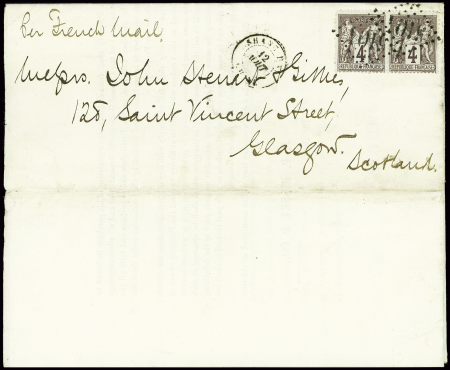 per French Mail.
Messrs. John Stewart & Gillies,
125, Saint Vincent Street,
Glasgow.
Scotland.
SHANG
4
REPUBLIQUE FRANÇAISE
4
REPUBLIQUE FRANÇAISE